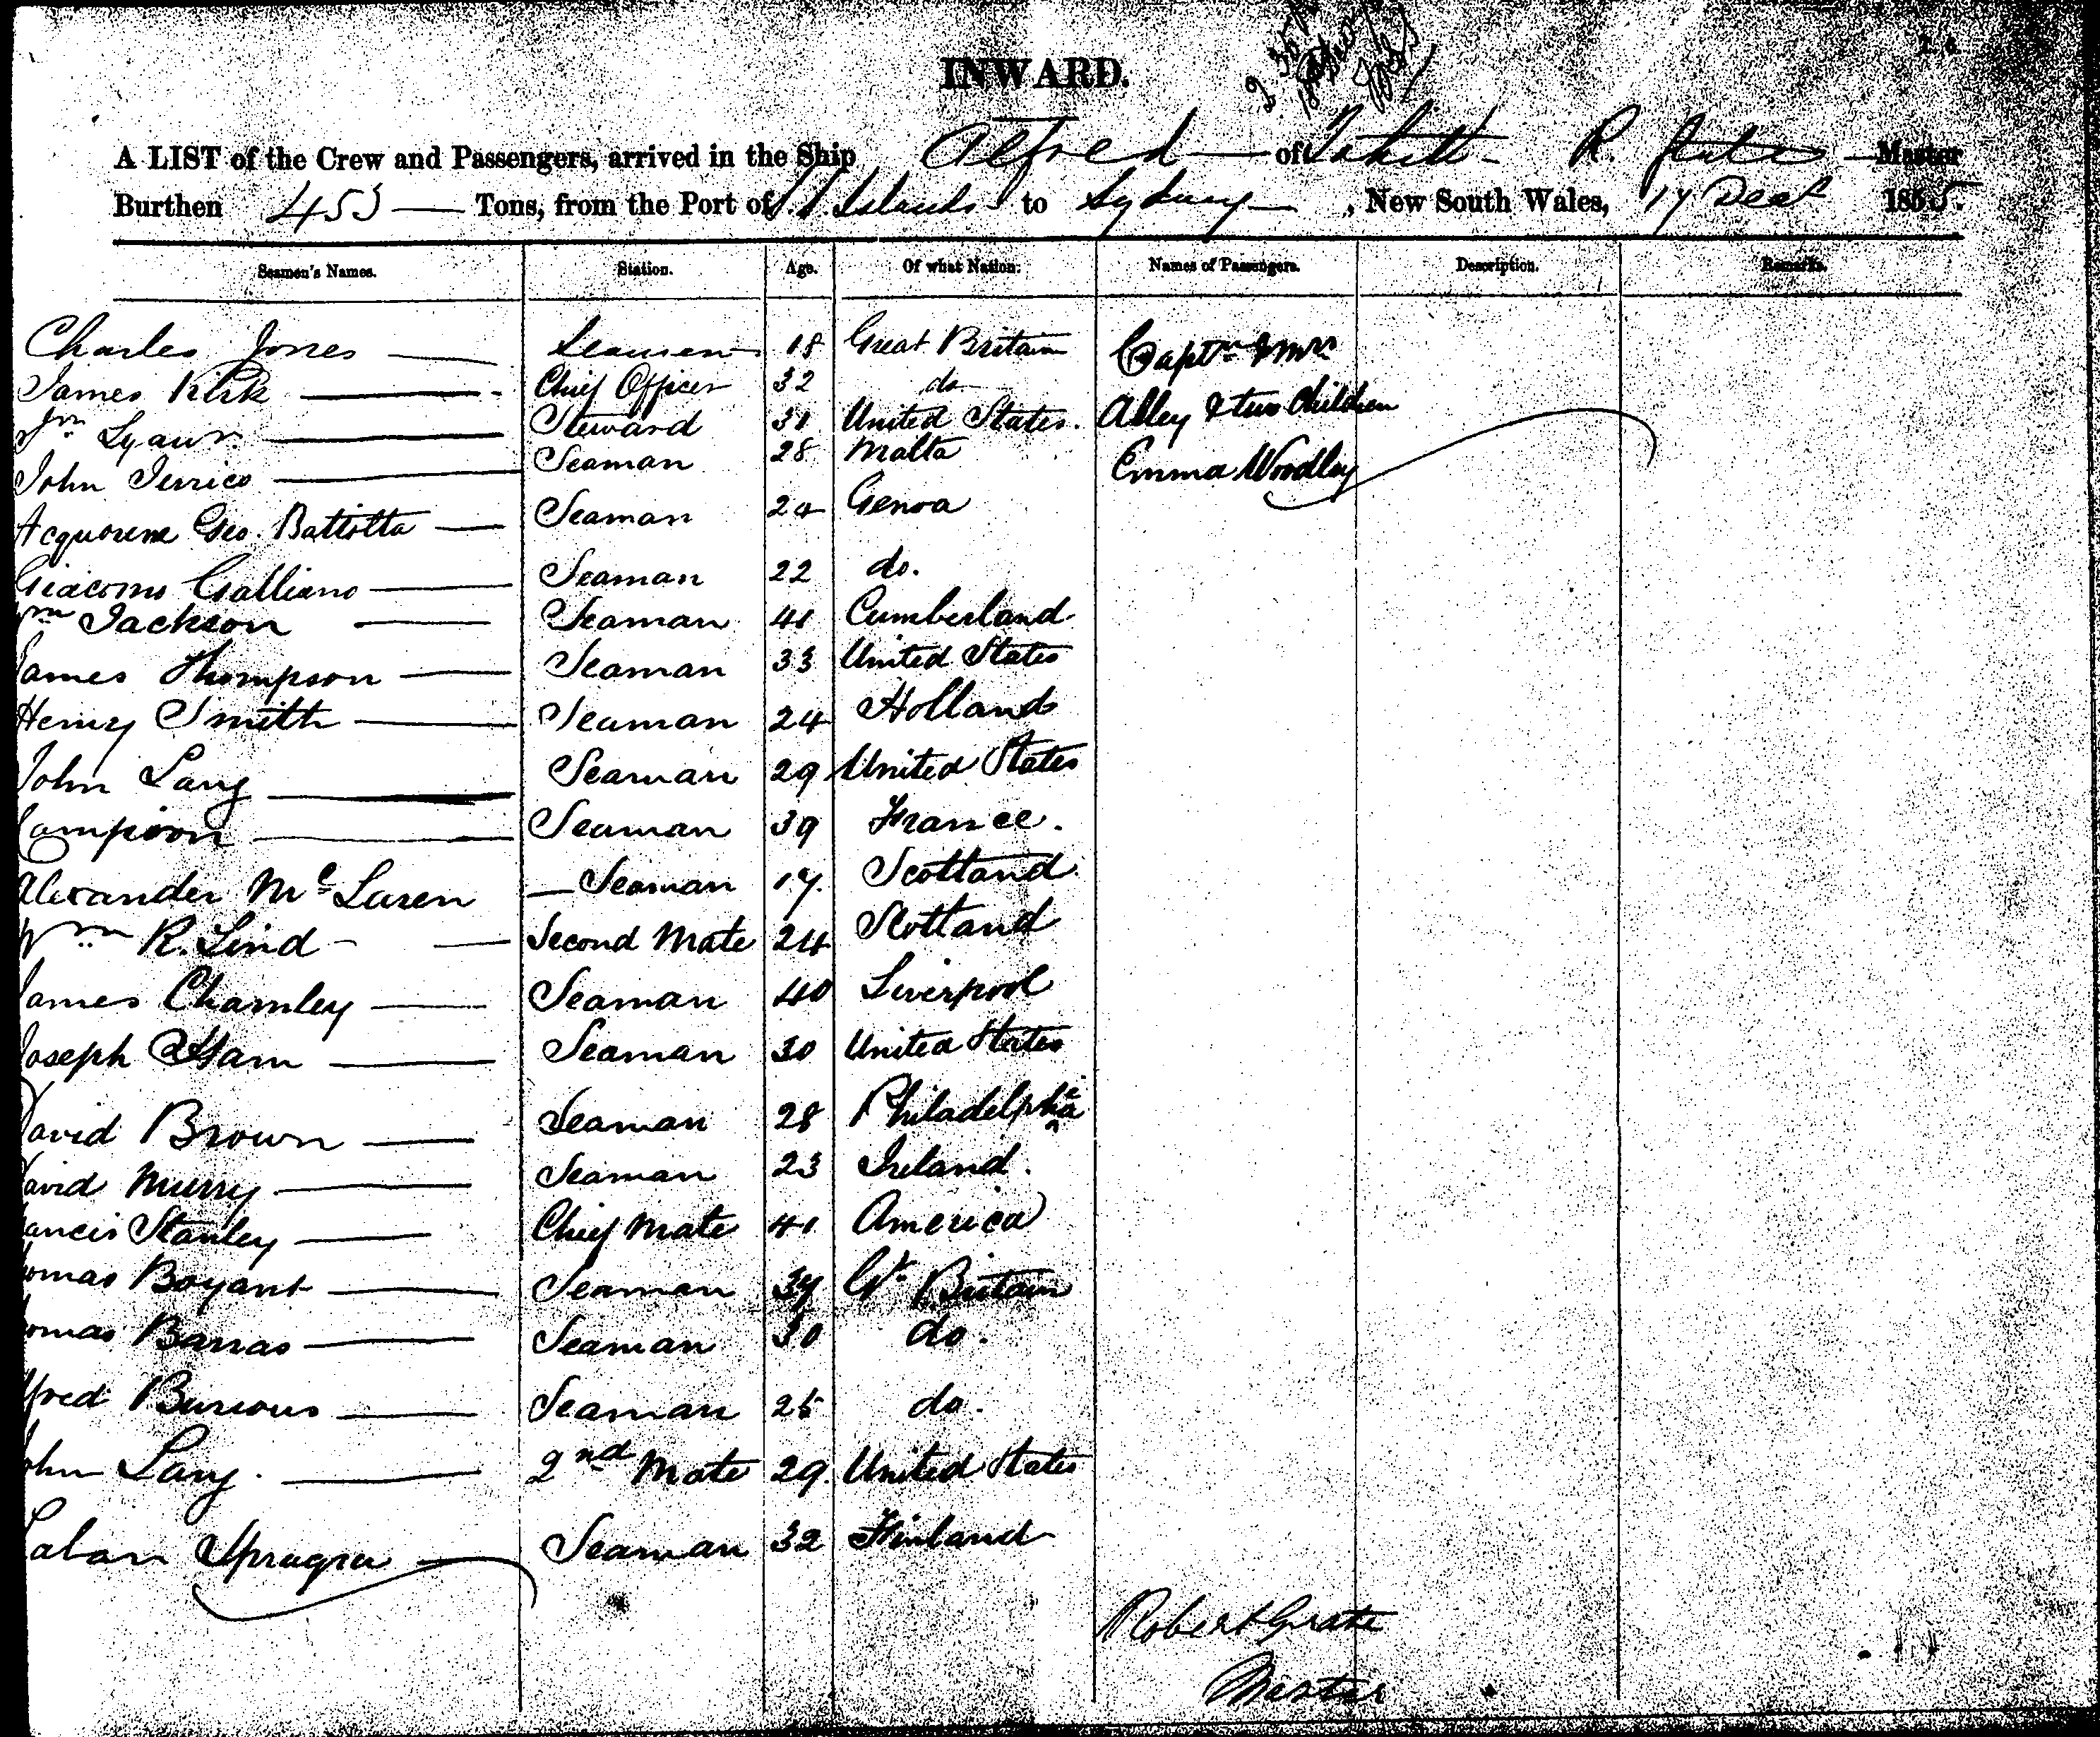 INWARD.
A LIST of the Crew and Passengers, arrived in the Ship Alfred of Tahiti R. Master
Burthen 453 Tons, from the Port of S. S. Islands to Sydney, New South Wales, 17 Decr 1865.
Seamen's Names. Station. Age. Of what Nation. Names of Passengers. Description. Remarks.
Charles Jones Seaman 18 Great Britain Captn & Mrs
James Kirk Chief Officer 32 do Alley & two Children
Steward 31 United States.
John Jerrico Seaman 28 Malta Emma Woodley
Acquorene Geo. Battista Seaman 24 Genoa
Giacomo Galliano Seaman 22 do.
Wm Jackson Seaman 41 Cumberland
James Thompson Seaman 33 United States
Henry Smith Seaman 24 Holland
John Lang Seaman 29 United States
Campion Seaman 39 France.
Alexander McLaren Seaman 17. Scotland
Wm R. Lind Second Mate 24 Scotland
James Charnley Seaman 40 Liverpool
Joseph Ham Seaman 30 United States
David Brown Seaman 28 Philadelphia
David Murry Seaman 23 Ireland.
ancis Stanley Chief Mate 41 America
omas Boyant Seaman 37 Gt Britain
omas Barras Seaman 30 do.
lfred Burrows Seaman 25 do.
John Lang. 2nd Mate 29 United States
Laban Sprague Seaman 32 Finland
Robert Grate
Master